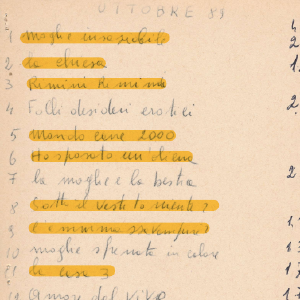 OTTOBRE 89
1 moglie insaziabile
2 la chiesa
3 Rimini Rimini
4 Folli desideri erotici
5 Mondo cane 2000
6 Ho sposato un'aliena
7 la moglie e la bestia
8 Sotto il vestito niente 2
9 c'è mamma
10 moglie sfrenata in calore
11 la casa 3
12 Amore dal vivo